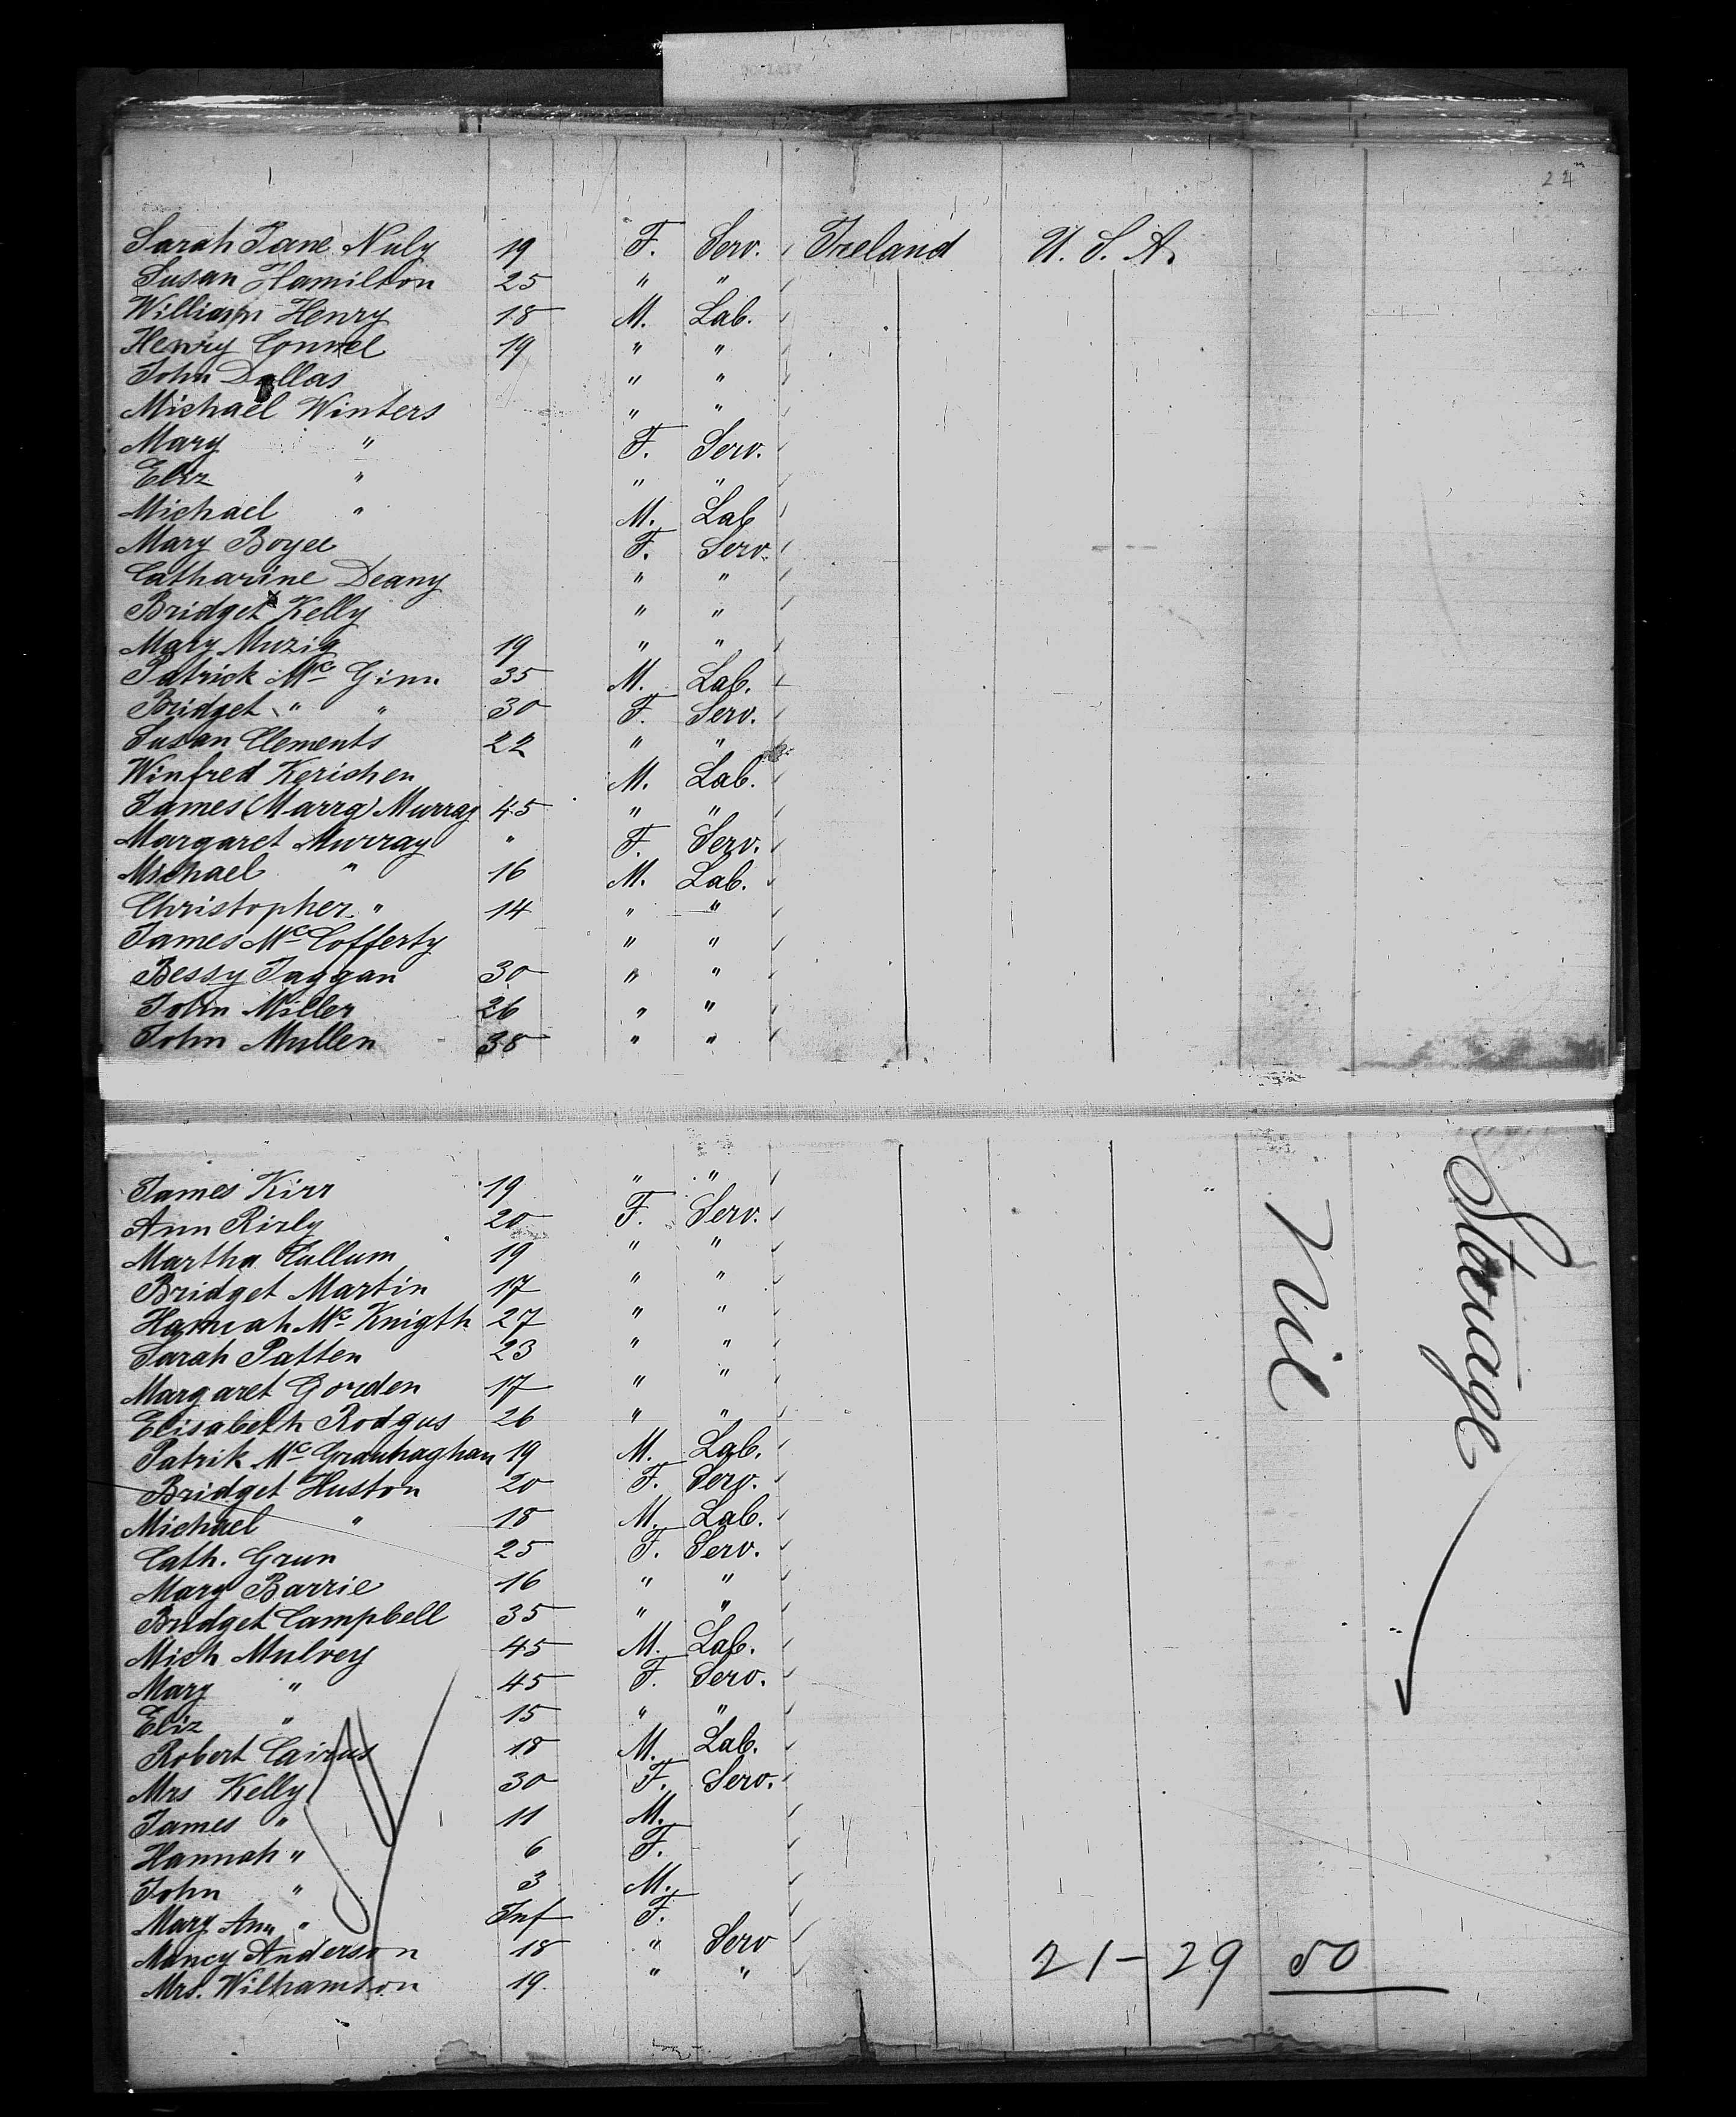 24
Sarah Jane Nuly 19 F. Serv. Ireland U. S. A.
Susan Hamilton 25 " "
William Henry 18 M. Lab.
Henry Connel 19 " "
John Dallas " "
Michael Winters " "
Mary " F. Serv.
Eliz " " "
Michael " M. Lab
Mary Boyce F. Serv.
Catharine Deany " "
Bridget Kelly " "
Mary Muzig 19 " "
Patrick Mc Ginn 35 M. Lab.
Bridget " " 30 F. Serv.
Susan Clements 22 " "
Winfred Kerichen M. Lab.
James (Marra) Murray 45 " "
Margaret Murray " F. Serv.
Michael " 16 M. Lab.
Christopher " 14 " "
James Mc Cofferty " "
Bessy Taggan 30 " "
John Miller 26 " "
John Mullen 38 " "
James Kirr 19 " "
Ann Rirly 20 F. Serv.
Martha Cullum 19 " "
Bridget Martin 17 " "
Hannah Mc Knigth 27 " "
Sarah Patten 23 " "
Margaret Gorden 17 " "
Elisabeth Rodgus 26 " "
Patrik Mc 19 M. Lab.
Bridget Huston 20 F. Serv.
Michael " 18 M. Lab.
Cath. Grun 25 F. Serv.
Mary Barrie 16 " "
Bridget Campbell 35 " "
Mich Mulvey 45 M. Lab.
Mary " 45 F. Serv.
Eliz " 15 " "
Robert Cairus 18 M. Lab.
Mrs Kelly 30 F. Serv.
James " 11 M.
Hannah " 6 F.
John " 3 M.
Mary Ann " Inf F.
Nancy Anderson 18 " Serv
Mrs. Williamson 19. " "
Nil
Steerage
21-29 50